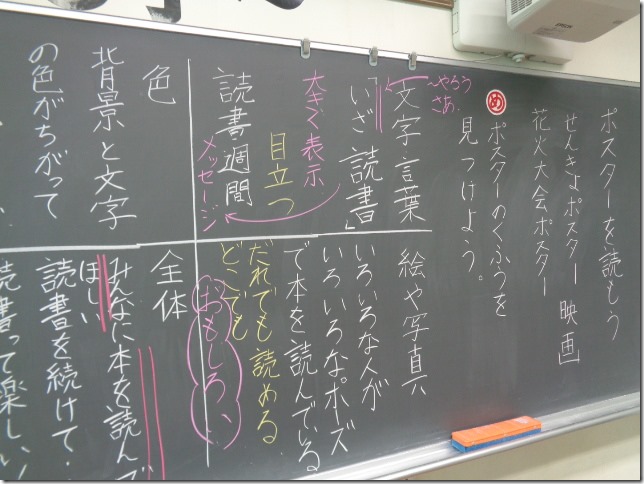 ポスターを読もう
せんきょポスター 映画
花火大会ポスター
め ポスターのくふうを
見つけよう。
~やろう
さあ
文字言葉
「いざ読書」
大きく表示
目立つ
読書週間
メッセージ
絵や写真
いろいろな人が
いろいろなポーズ
で本を読んでいる
だれでも読める
どこでも
おもしろい
色
背景と文字
の色がちがって
全体
みんなに本を読んで
ほしい
読書を続けて
読書って楽しい!
EPSON